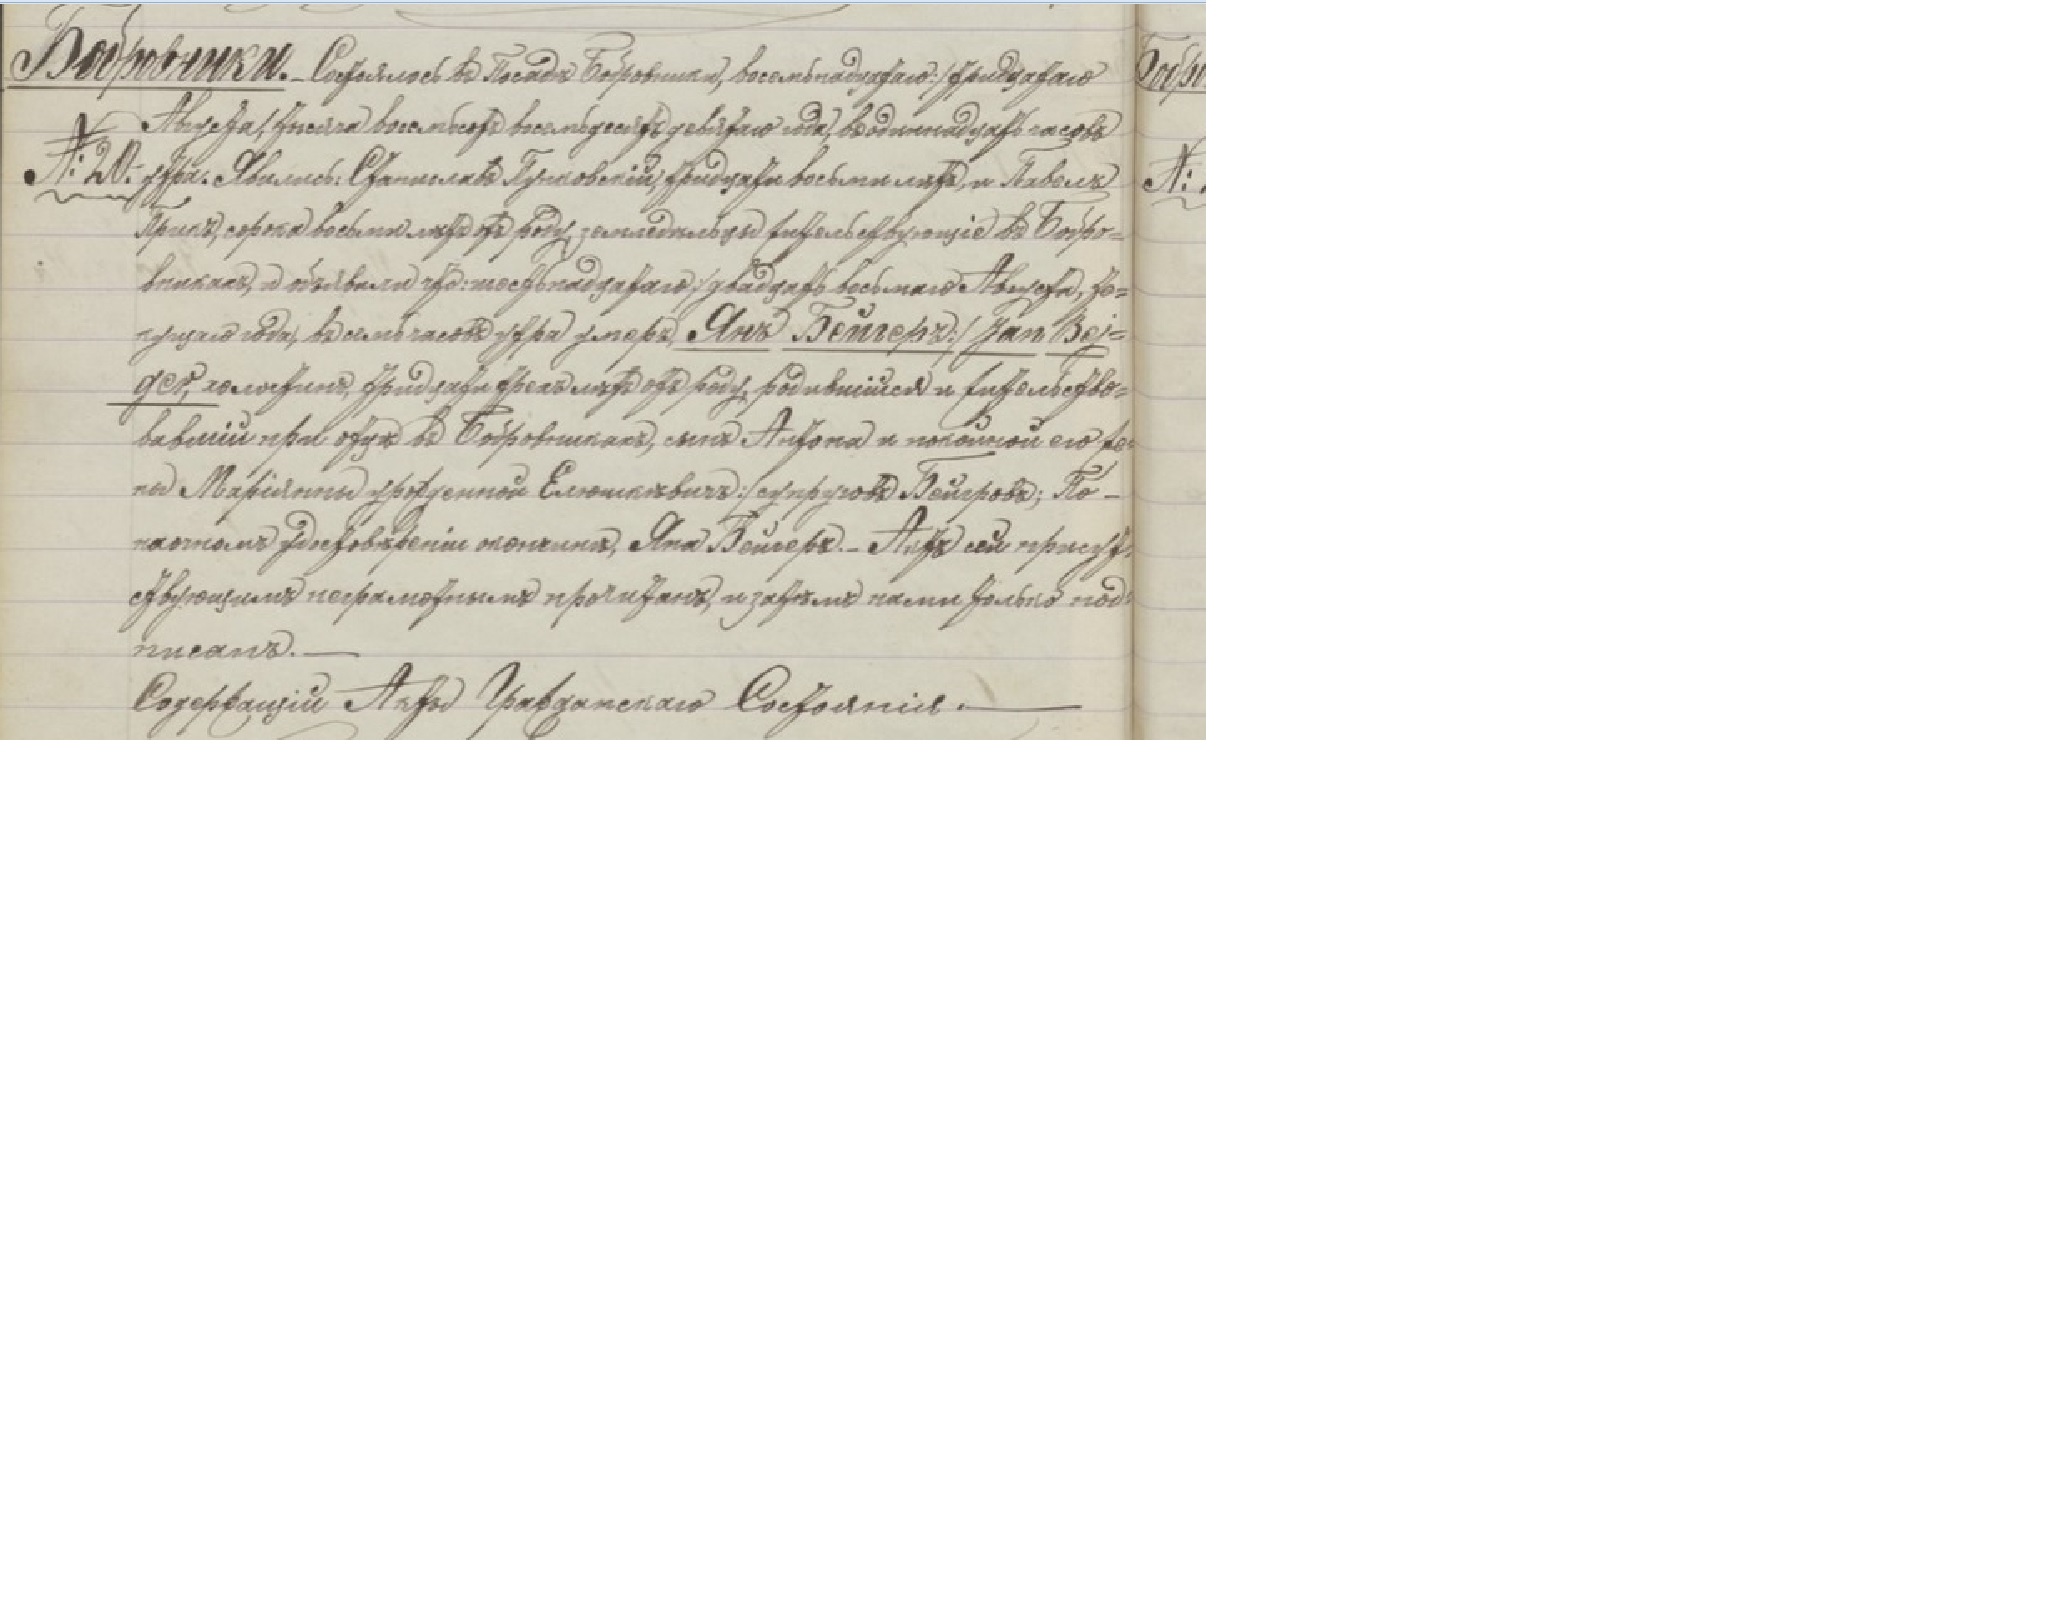 Бобровники. – Состоялось въ Посадѣ Бобровники, восемьнадцатаго:/тридцатаго
Августа, тысяча восемьсотъ восемьдесятъ девятаго года, въ одиннадцать часовъ
№: 20. утра. Явились: Станиславъ Гутковскій, тридцати восьми лѣтъ, и Павелъ
сорока восьми лѣтъ отъ роду, земледѣльцы жительствующіе въ Бобро=
вникахъ, и объявили что: шестьнадцатаго:/двадцать восьмаго Августа, те=
кущаго года, въ семь часовъ утра умеръ, Янъ Бейгеръ:/Jan Bej=
ger, холостякъ, тридцати трехъ лѣтъ отъ роду, родившійся и жительство=
вавшій при отцѣ въ Бобровникахъ, сынъ Антона и покойной его же=
ны Маріянны урожденной Елюшкевичъ:/супруговъ Бейгровъ; По –
настномъ удостовѣреніи кончинѣ, Яна Бейгеръ. – Актъ сей присут=
ствующимъ неграмотнымъ прочитанъ, и затѣмъ нами только под=
писанъ. —
Содержащій Акты Гражданскаго Состоянія. —